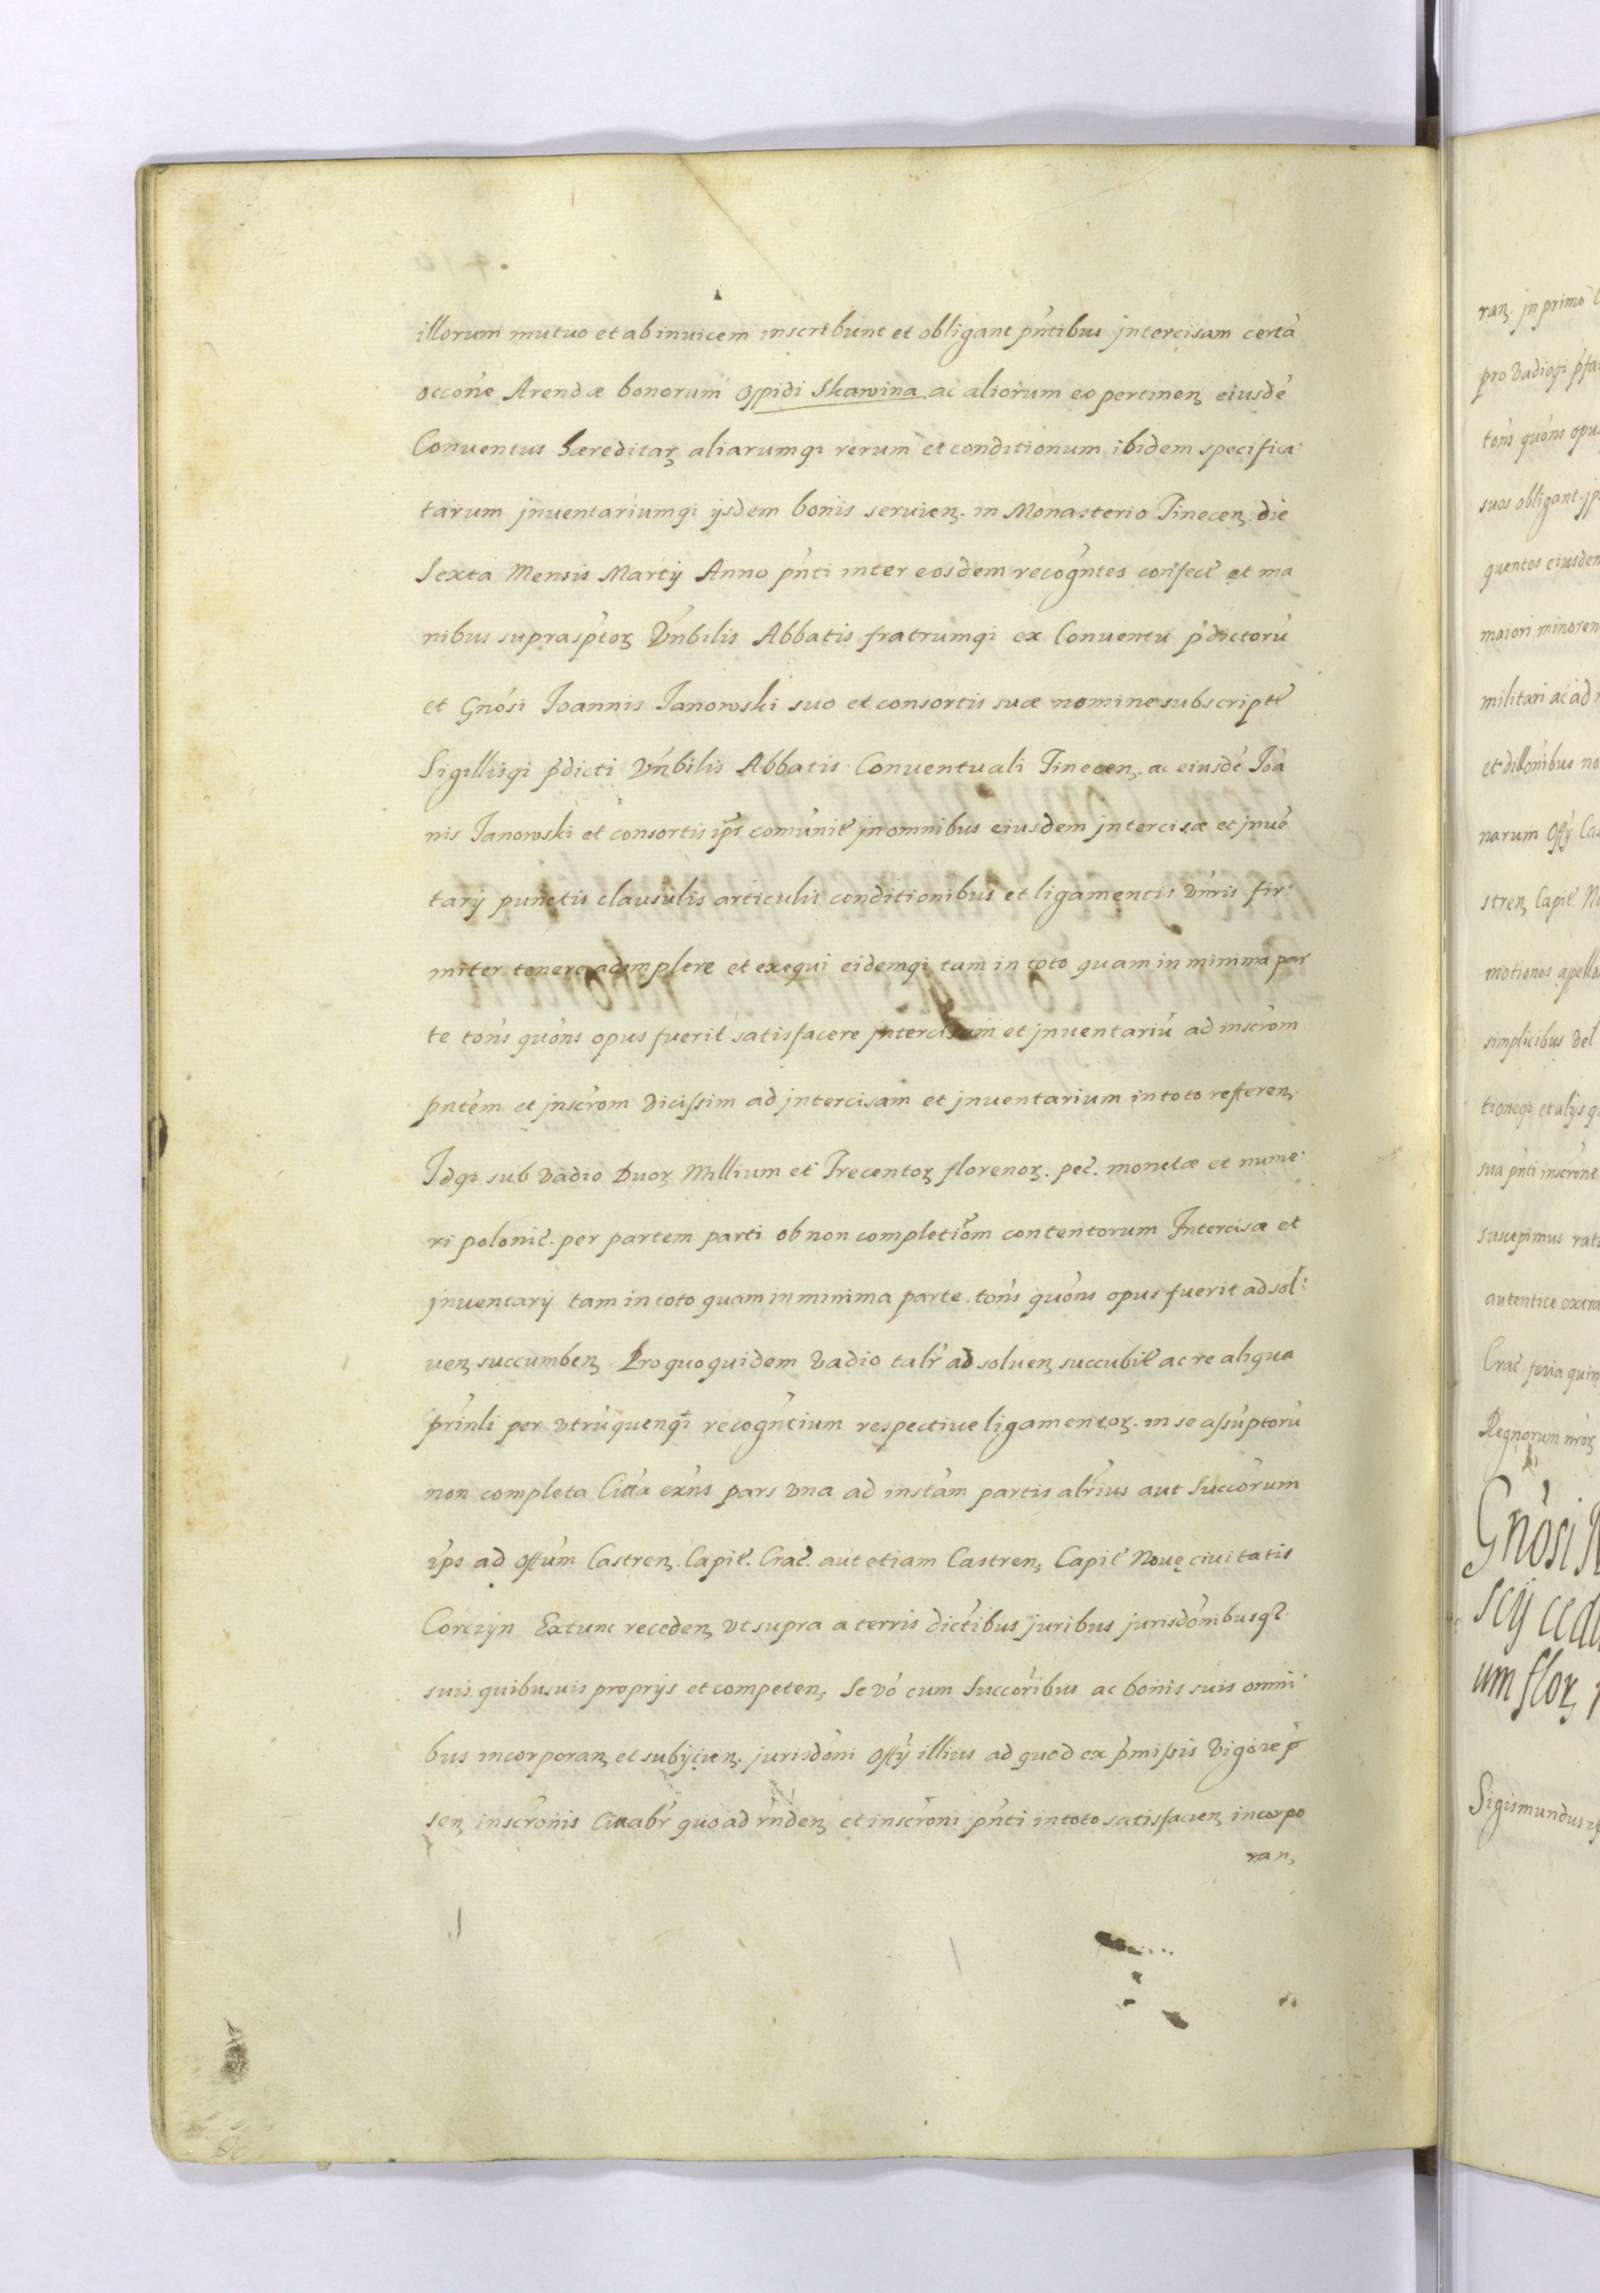 illorum mutuo et ab inuicem inscribunt et obligant pñtibus jntercisam certã
occoñe Arendæ bonorum Oppidi Skawina ac aliorum eo pertineñ eiusdẽ
Conuentus hæreditaꝝ aliarumqꝫ rerum et conditionum ibidem specifica
tarum jnuentariumqꝫ ijsdem bonis seruieñ. in Monasterio Tineceñ die
Sexta Mensis Martij Anno pñti inter eosdem recogñtes confect̃ et ma
nibus suprasp̃toꝝ Vñbilis Abbatis fratrumqꝫ ex Conuentu p̃dictorũ
et Gñosi Joannis Janowski suo et consortis suæ nomine subscript̃
Sigillisqꝫ p̃dicti Vñbilis Abbatis Conuentuali Tineceñ. ac eiusdẽ Joã
nis Janowski et consortis ip̃s comũnit̃ jn omnibus eiusdem jntercisæ et jnuẽ
tarij punctis clausulis articulis conditionibus et ligamentis vñris fir
miter tenere adimplere et exequi eidemqꝫ tam in toto quam in minima par
te tõns quõns opus fuerit satisfacere jntercisam et jnuentariũ ad inscr̃om
pñtem et jnscr̃om vicissim ad jntercisam et jnuentarium in toto refereñ.
Idqꝫ sub vadio Duoꝝ Millium et Trecentoꝝ florenoꝝ. pec̃. monetæ et nume
ri polonic̃. per partem parti ob non completiõm contentorum Intercisæ et
jnuentarij tam in toto quam in minima parte. tõns quõns opus fuerit ad sol
ueñ succumbeñ Pro quo quidem vadio talr̃ ad solueñ succubit̃ ac re aliqua
pr̃inli per vtrũquenqꝫ recogñtium respectiue ligamentoꝝ. in se assũptorũ
non completa Citta ex̃ns pars vna ad instãm partis alr̃ius aut Succõrum
ip̃s ad Off̃um Castreñ. Capit̃. Crac̃. aut etiam Castreñ, Capit̃ Nouę ciuitatis
Corczyn Extunc recedeñ vt supra a terris dictr̃ibus juribus jurisdõnibusqꝫ
suis quibusuis proprijs et competeñ, Se vó cum Succõribus ac bonis suis omni
bus incorporañ et subijcieñ. jurisdõni Offij illius ad quod ex p̃missis vigore p̃
señ inscr̃onis Cittabr̃ quo ad rñdeñ et inscr̃oni pñti in toto satisfacieñ incorpo
rañ,
ran̄. jn primo
pro vadioqꝫ
tõns quõns opu
suos obligant.
quentes eiusdem
maiori minorem
militari ac ad
et dill̃onibus no
narum Offij Cas
streñ Capit̃
motiones apella
simplicibus vel
tioneqꝫ et alijs
sua pñti inscr̃one
suscepimus rat
autentice extra
Crac̃ feria quin
Regnorum nr̃oꝝ
Gñosi
scij cedu
um floꝝ
Sigismundus